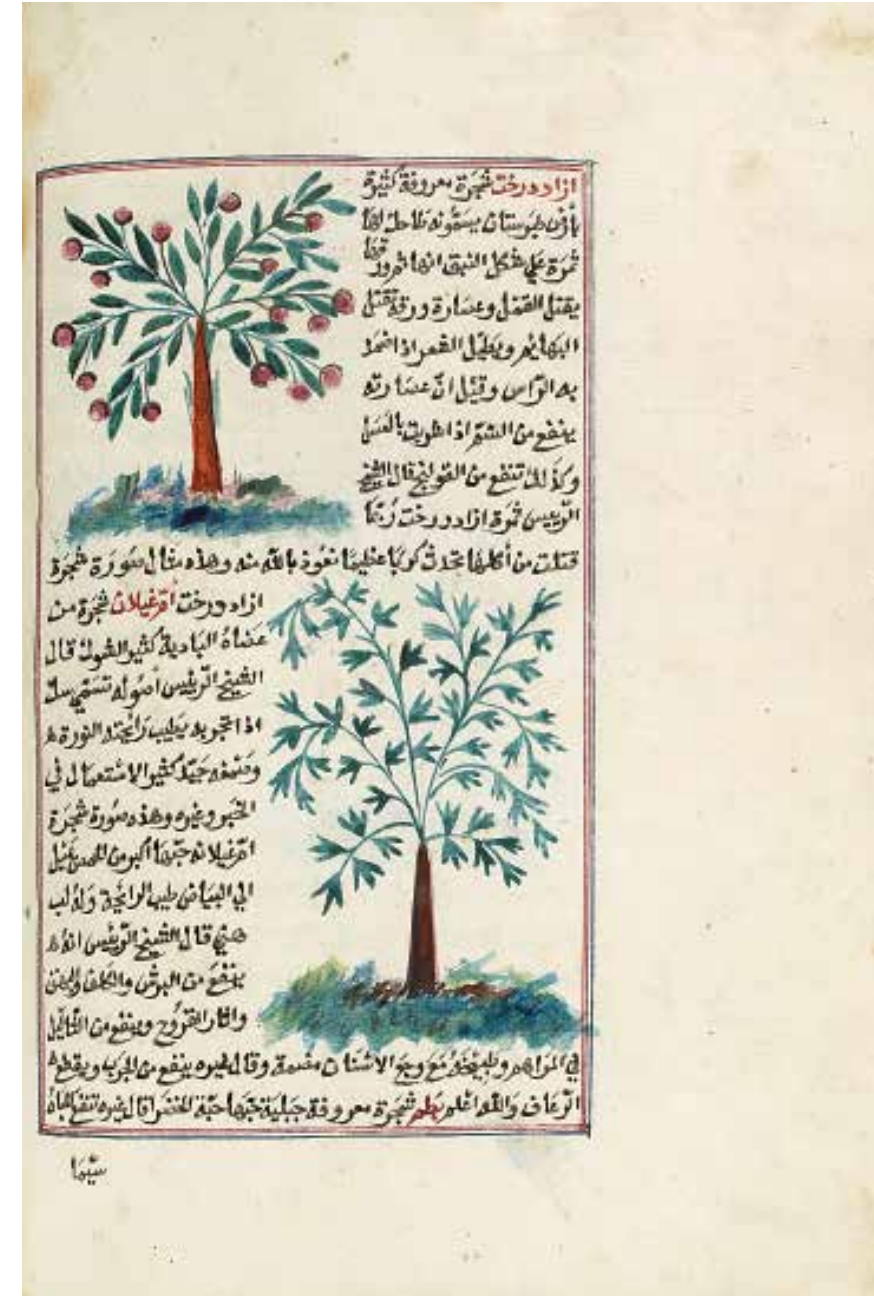 ازاد درخت شجرة معروفة كثيرة
بأرض طبرستان يسمونه طاحك لها
ثمرة على شكل النبق انها ثمر ورقها
يقتل القمل وعصارة ورقه تقتل
البهايم ويطيل الشعر اذا ضمد
به الرّاس وقيل انّ عصارته
ينفع من السّمّ اذا شربت بالعسل
وكذلك تنفع من القولنج قال الشيخ
الرّييس ثمرة ازاد درخت رُبّما
قتلت من أكلها تحدث كربا عظيما نعوذ بالله منه وهذه مثال صورة شجرة
ازاد درخت أمّ غيلان شجرة من
عضاة البادية كثير الشوك قال
الشيخ الرّئيس أصوله تسمي
اذا تبخر به يطيب رائحة النورة
وصمغه جيّد كثير الاستعمال في
الحبر وغيره وهذه صورة شجرة
امّ غيلان حبّها أكبر من الحمص يميل
الي البياض طيب الرائحة وله لب
قال الشيخ الرّئيس انه
ينفع من البرش والكلف والبهق
واثار القروح وينفع من الثآليل
في المراهم وطبيخه وجع الاسنان مضمضة وقال غيره ينفع من الجرب ويقطع
الرّعاف والله اعلم بطم شجرة معروفة جبلية حبّها حبّة الخضرا قال غيره تنفع للباه
سيّما